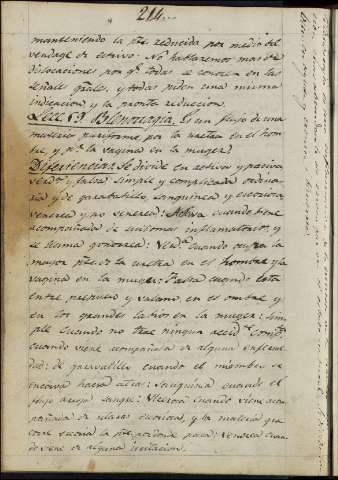 214...
manteniendo la pte. reducida por medio del
vendage de estrivo. No hablaremos mas de
dislocaciones por qe. todas se conocen en las
señales grales., y todas piden una misma
indicacion y la pronta reduccion.
Lecc. 69 Blenorragia. Es un flujo de una
materia puriforme por la uretra en el hom
bre y pr. la vagina en la muger.
Diferiencias. Se divide en activa y pasiva,
verda. y falsa simple y complicada ordina
ria y de garabatillo, sanguinea y ulcerosa,
venerea y no venerea: Activa cuando viene
acompañada de sintomas inflamatorios, y
se llama gonorrea: Verda. cuando ocupa la
mayor pte. de la uretra en el hombre y la
vagina en la muger: Falsa cuando está
entre prepucio y valano en el ombre y
en los grandes labios en la muger: sim
ple cuando no trae ningun accidte.
cuando viene acompañada de alguna enferme
dad: de garavatillo cuando el miembro se
encorva hacia atras: Sanguinea cuando el
flujo arroja sangre: Ulcerosa cuando viene acom
pañada de ulceras, y la materia que
corre escoria la pte. por donde pasa: Venerea cuan
do viene de alguna